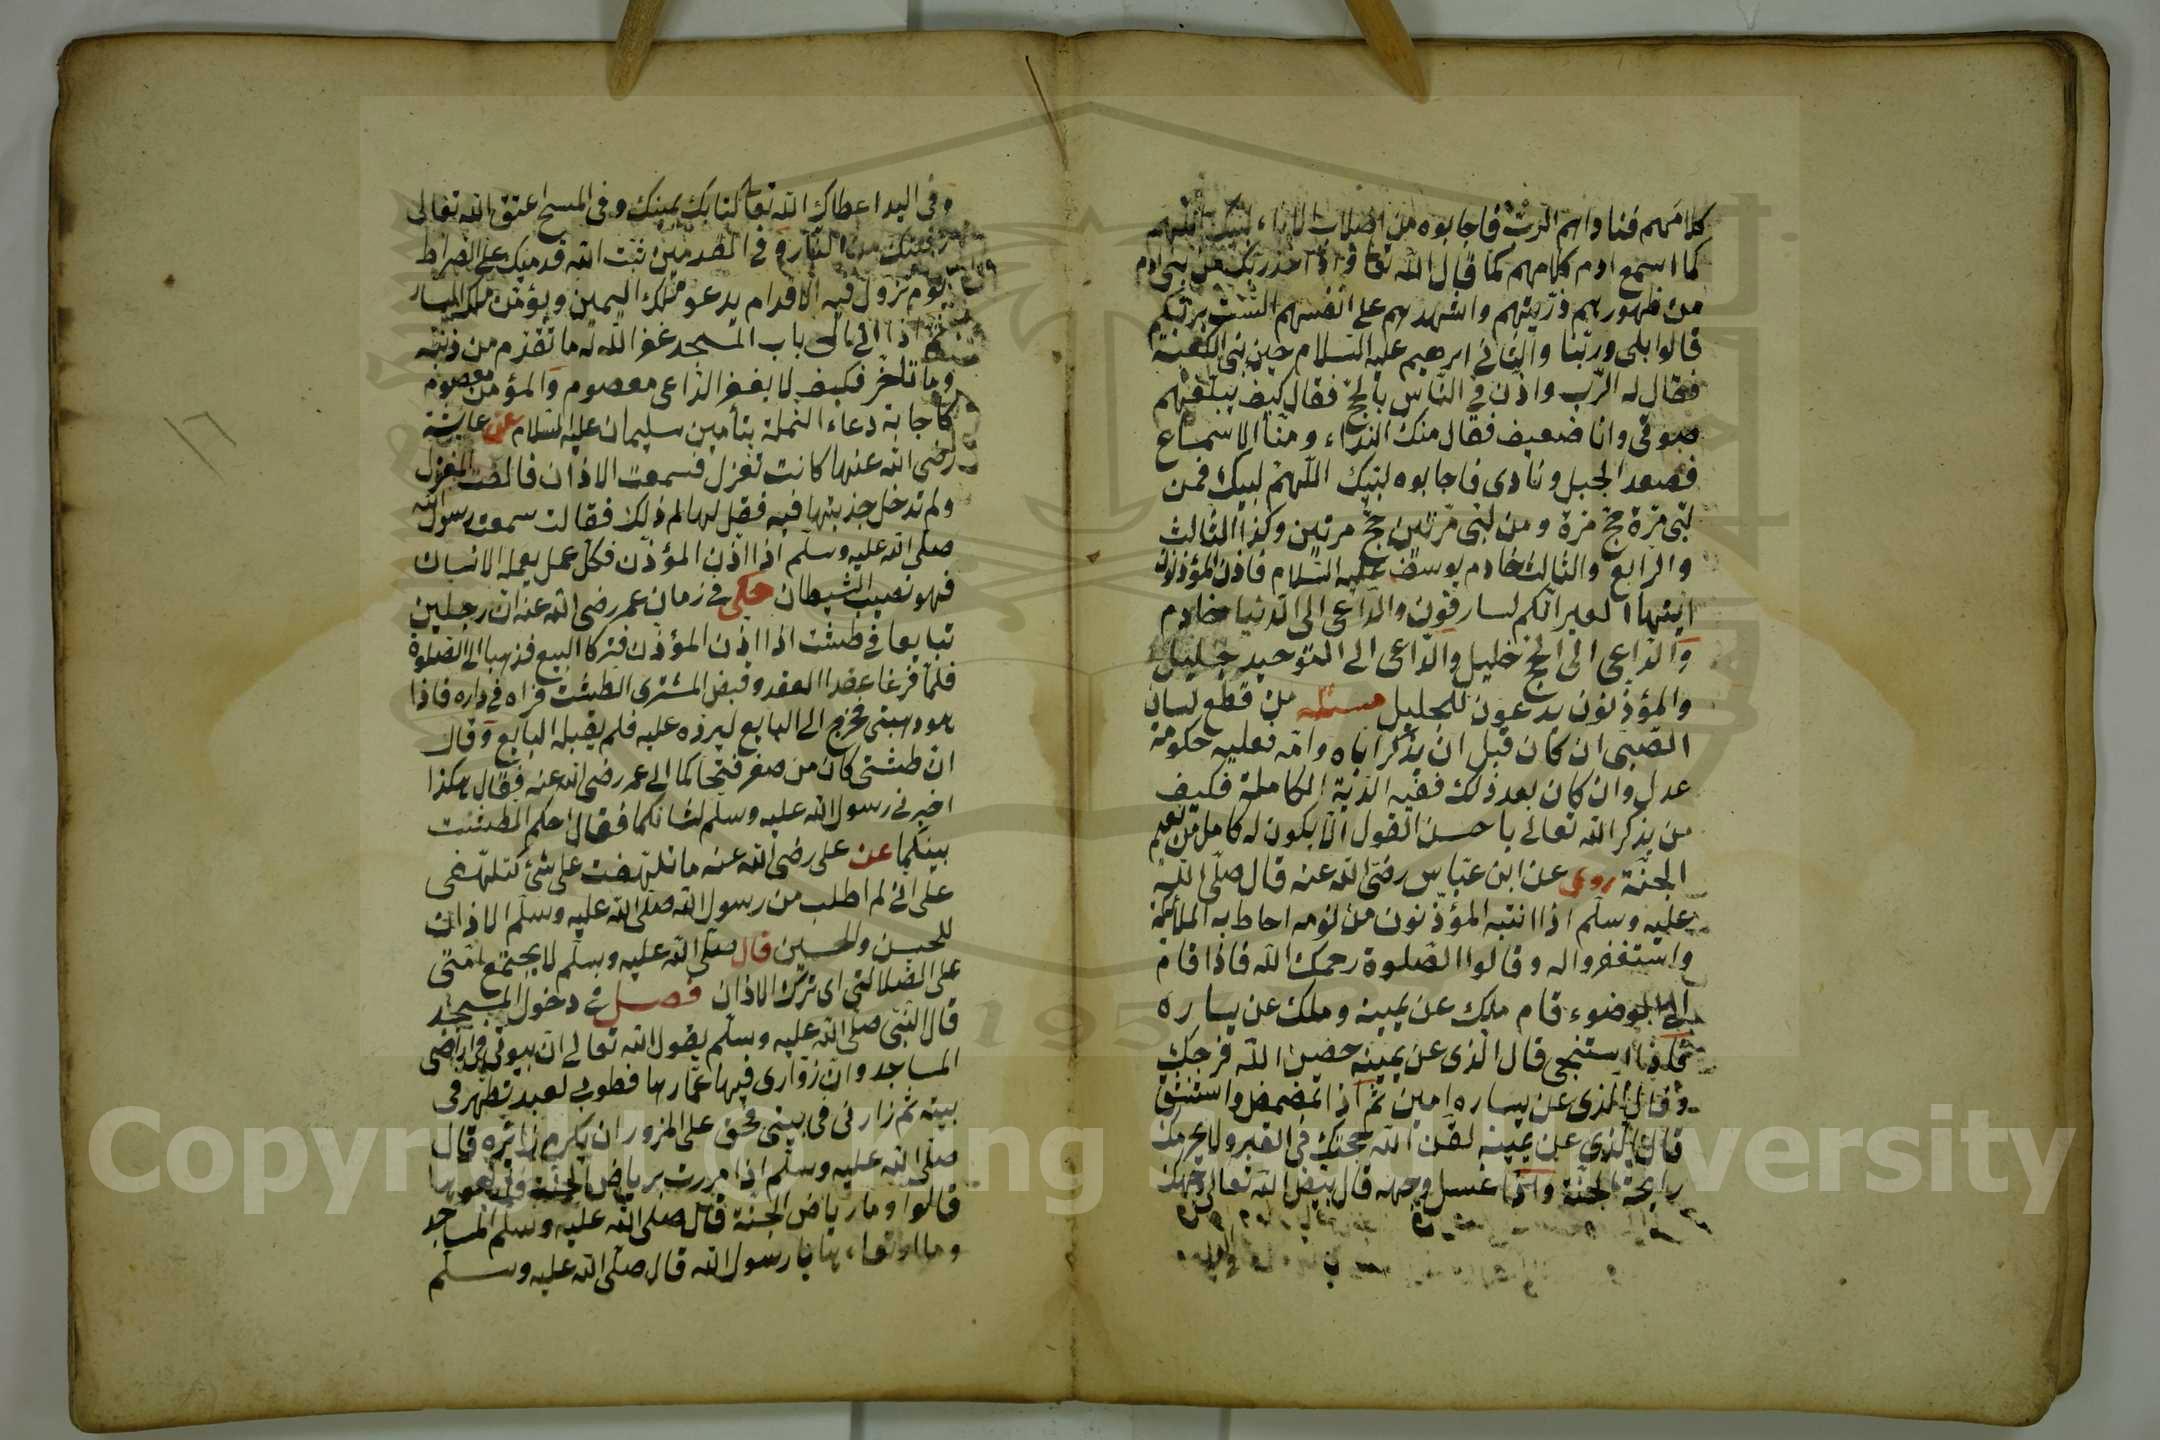 كلامهم فناداهم الرب فاجابوه من اصلاب الاباء لبيك اللهم
كما اسمع ادم كلامهم كما قال الله تعا واذ اخذ ربك من بنى ادم
من ظهورهم ذريتهم واشهدهم على انفسهم الست بربكم
قالوا بلى وربنا والثانى ابرهيم عليه السلام حين بنى الكعبة
فقال له الرب واذن فى الناس بالحج فقال كيف يبلغهم
صوتى وانا ضعيف فقال منك النداء ومنا الاسماع
فصعد الجبل ونادى فاجابوه لبيك اللهم لبيك فمن
لبى مرة حج مرة ومن لبى مرتين حج مرتين وكذا الثالث
والرابع والثالث خادم يوسف عليه السلام فاذن المؤذن
ايتها العير انكم لسارقون والداعى الى الدنيا خادم
والداعى الى الحج خليل والداعى الى التوحيد جليل
والمؤذنون يدعون للجليل مسئله من قطع لسان
الصبى ان كان قبل ان يذكر اباه وامه فعليه حكومة
عدل وان كان بعد ذلك ففيه الدية الكاملة فكيف
من يذكر الله تعالى باحسن القول الا يكون له كامل من نعيم
الجنة روى عن ابن عباس رضى الله عنه قال صلى الله
عليه وسلم اذا انتبه المؤذنون من نومه احاط به الملائكة
واستغفروا له وقالوا الصلوة رحمك الله فاذا قام
الى الوضوء قام ملك عن يمينه وملك عن يساره
فاذا استنجى قال الذى عن يمينه حصن الله فرجك
وقال الذى عن يساره امين ثم اذا تمضمض واستنشق
قال الذى عن يمينه لقن الله حجتك فى القبر ولا يحرمك
رايحة الجنة واذا غسل وجهه قال بيض الله تعالى وجهك
وفى اليد اعطاك الله تعا كتابك بيمينك وفى المسح اعتق الله تعالى
رقبتك من النار وفى القدمين ثبت الله قدميك على الصراط
يوم تزول فيه الاقدام يدعو ملك اليمين ويؤمن ملك اليسار
ثم اذا اتى الى باب المسجد غفر الله له ما تقدم من ذنبه
وما تأخر فكيف لا يغفر الداعى معصوم والمؤمن معصوم
كاجابة دعاء النملة بتأمين سليمان عليه السلام عن عايشة
رضى الله عنها كانت تغزل فسمعت الاذان فالقت المغزل
ولم تدخل جذبتها فيه فقيل لها لم ذلك فقالت سمعت رسول الله
صلى الله عليه وسلم اذا اذن المؤذن فكل عمل يعمله الانسان
فهو نصيب الشيطان حكى فى زمان عمر رضى الله عنه ان رجلين
تبايعا فى طشت اذا اذن المؤذن فتركا البيع فذهبا الى الصلوة
فلما فرغا عقدا العقد وقبض المشترى الطشت فراه فى داره فاذا
هو ذهبتى فخرج الى البايع ليرده عليه فلم يقبله البايع وقال
ان طشتى كان من صفر فتحاكما الى عمر رضى الله عنه فقال هكذا
اخبرنى رسول الله عليه وسلم لشانكما فقال احكم الطشت
بينكما عن على رضى الله عنه ما تلهفت على شئ كتلهفى
على انى لم اطلب من رسول الله صلى الله عليه وسلم الاذان
للحسن والحسين قال صلى الله عليه وسلم لا يجتمع امتى
على الضلالتى اى ترك الاذان فصل فى دخول المسجد
قال النبى صلى الله عليه وسلم يقول الله تعالى ان بيوتى فى ارضى
المساجد وان زوارى فيها عمارها فطوبى لعبد تطهر فى
بيته ثم زارنى فى بيتى فحق على المزور ان يكرم زائره قال
صلى الله عليه وسلم اذا مررت برياض الجنة
قالوا وما رياض الجنة قال صلى الله عليه وسلم المساجد
يا رسول الله قال صلى الله عليه وسلم
١٦
Copyright University
195